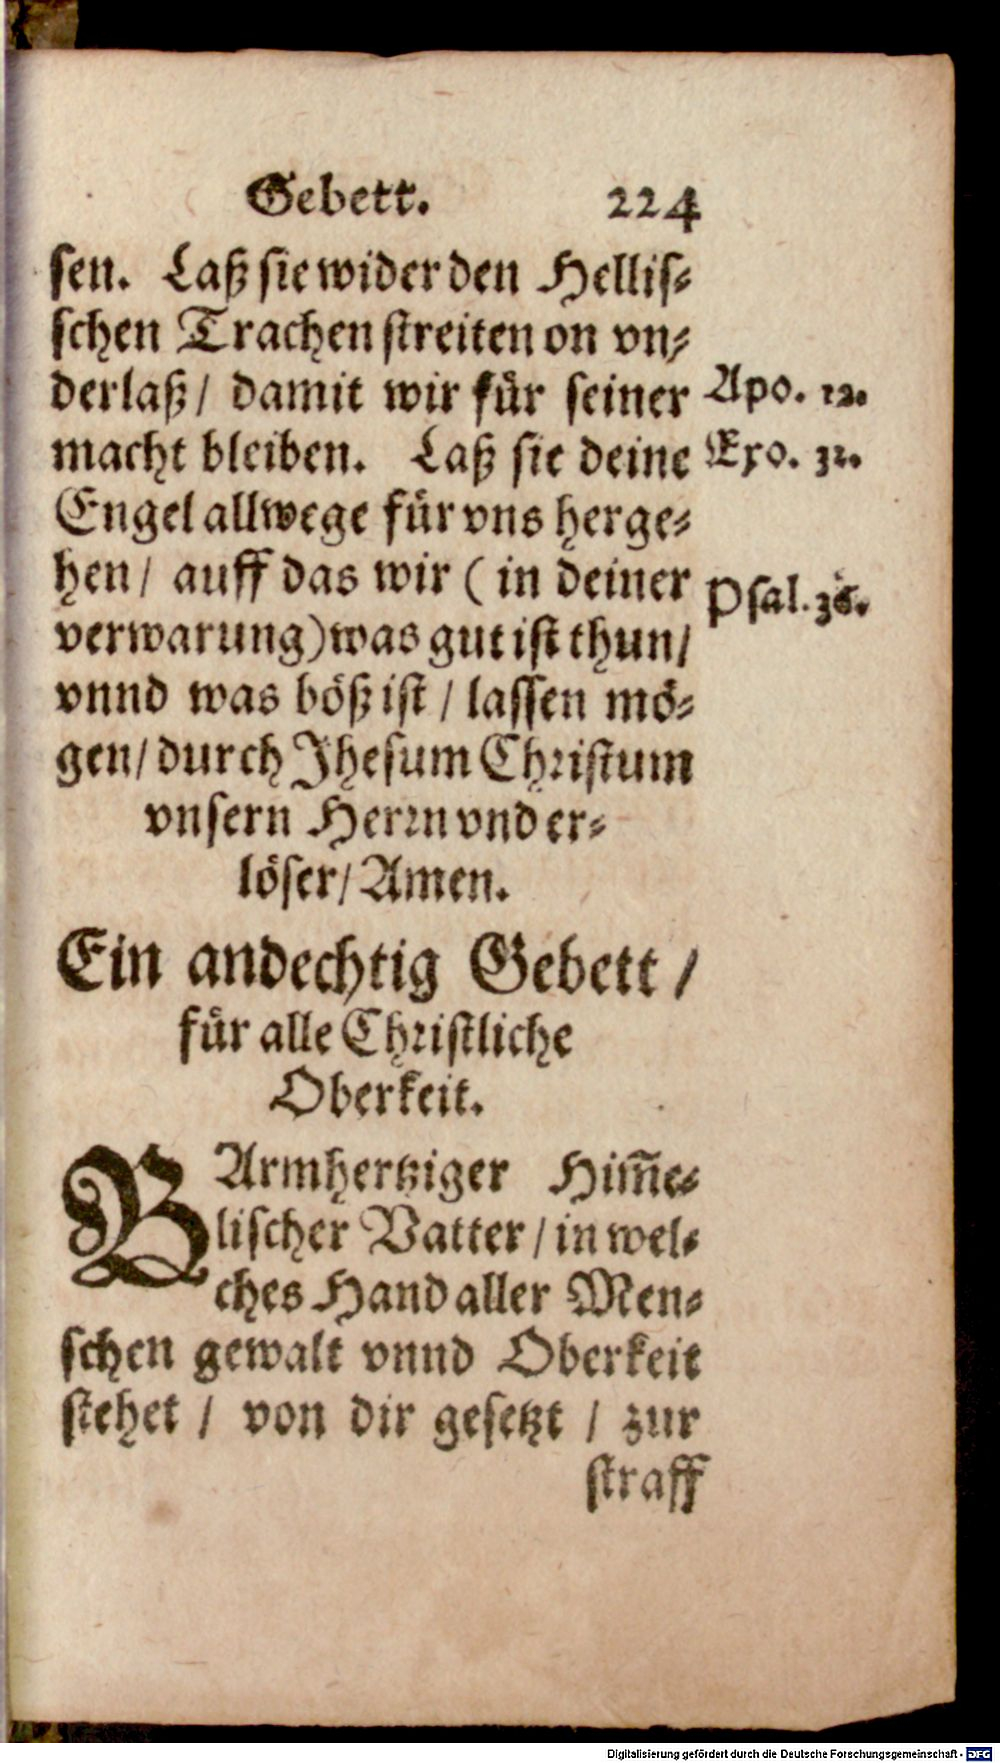 Gebett. 224
sen. Laß sie wider den Hellis⸗
schen Trachen streiten on vn⸗
derlaß / damit wir für seiner
Apo. 12.
macht bleiben. Laß sie deine
Exo. 32.
Engel allwege für vns herge⸗
hen / auff das wir ( in deiner
Psal. 36.
verwarung) was gut ist thun /
vnnd was böß ist / lassen mö⸗
gen / durch Jhesum Christum
vnsern Herrn vnd er⸗
löser / Amen.
Ein andechtig Gebett /
für alle Christliche
Oberkeit.
BArmhertziger Him̅e⸗
lischer Vatter / in wel⸗
ches Hand aller Men⸗
schen gewalt vnnd Oberkeit
stehet / von dir gesetzt / zur
straff
Digitalisierung gefördert durch die Deutsche Forschungsgemeinschaft - DFG